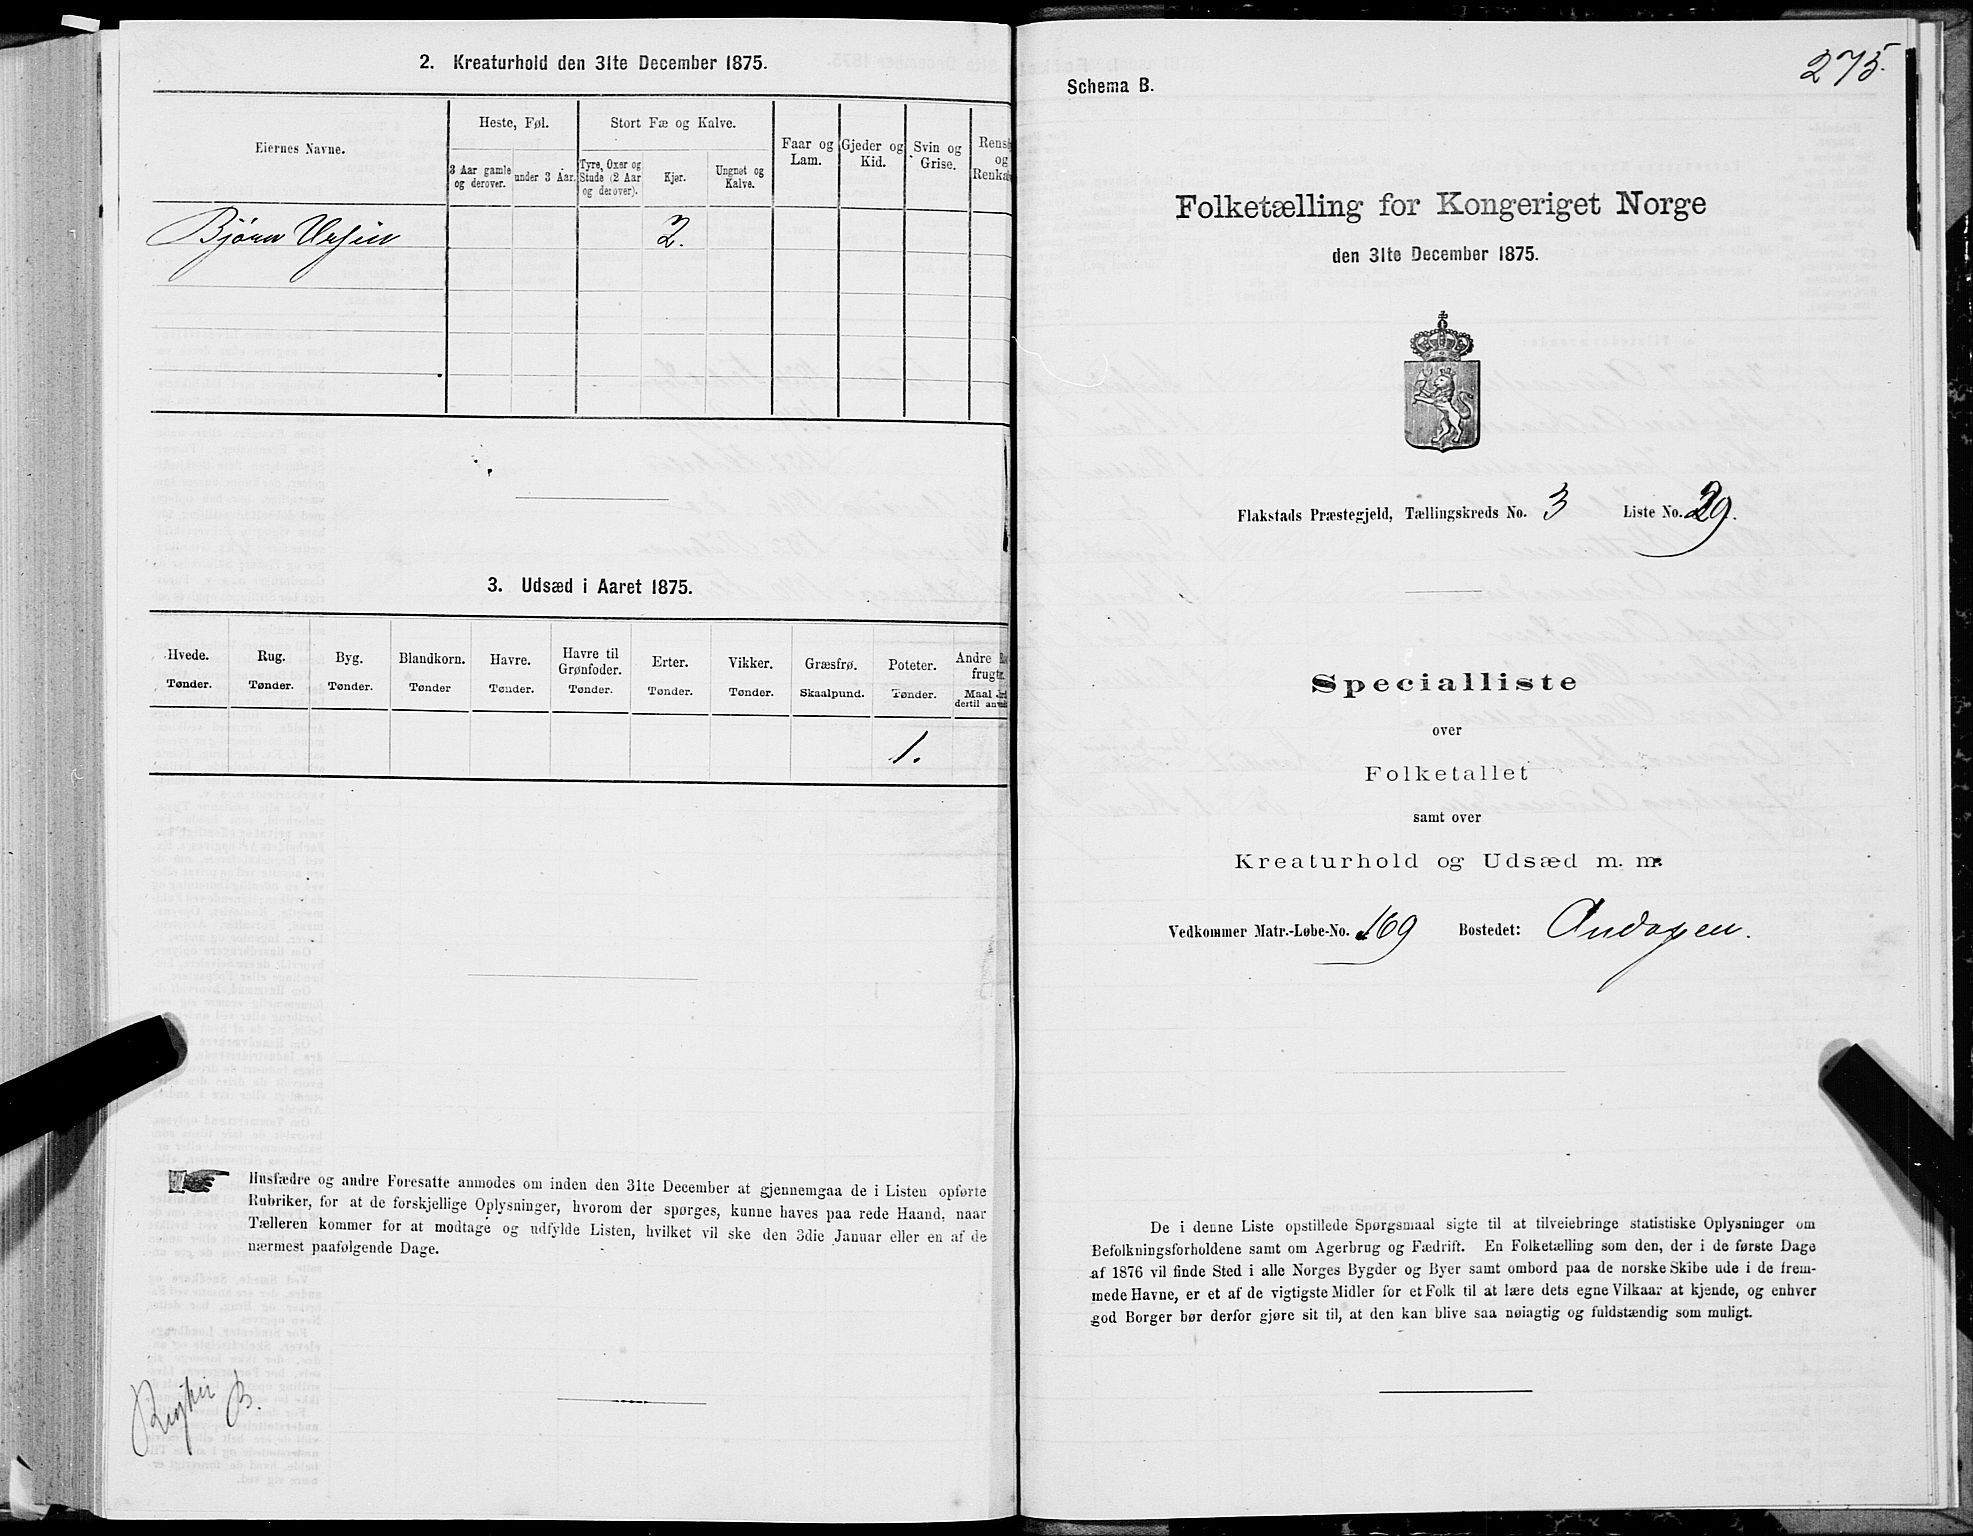 2. Kreaturhold den 31te December 1875.
Eiernes Navne.
Heste, Føl.
Stort Fæ og Kalve.
Faar og Lam.
Gjeder og Kid.
Svin og Grise.
Rens og
3 Aar gamle og derover.
under 3 Aar.
Tyre, Oxer og Stude (2 Aar og derover).
Kjør.
Ungnøt og Kalve.
Bjørn
2.
3. Udsæd i Aaret 1875.
Hvede. Tønder.
Rug. Tønder.
Byg. Tønder.
Blandkorn. Tønder
Havre. Tønder.
Havre til Grønfoder. Tønder.
Erter. Tønder.
Vikker. Tønder.
Græsfrø. Skaalpund.
Poteter. Tønder.
Andre
frugtr.
Maal
dertil
1.
Husfædre og andre Foresatte anmodes om inden den 31te December at gjennemgaa de i Listen opførte
Rubriker, for at de forskjellige Oplysninger, hvorom der spørges, kunne haves paa rede Haand, naar
Tælleren kommer for at modtage og udfylde Listen, hvilket vil ske den 3die Januar eller en af de
nærmest paafølgende Dage.
B.
275.
Schema B.
Folketælling for Kongeriget Norge
den 31te December 1875.
Flakstads Præstegjeld, Tællingskreds No. 3 Liste No. 29.
Specialliste
over
Folketallet
samt over
Kreaturhold og Udsæd m. m.
Vedkommer Matr.-Løbe-No. 169 Bostedet: Andopen.
De i denne Liste opstillede Spørgsmaal sigte til at tilveiebringe statistiske Oplysninger om
Befolkningsforholdene samt om Agerbrug og Fædrift. En Folketælling som den, der i de første Dage
af 1876 vil finde Sted i alle Norges Bygder og Byer samt ombord paa de norske Skibe ude i de frem-
mede Havne, er et af de vigtigste Midler for et Folk til at lære dets egne Vilkaar at kjende, og enhver
god Borger bør derfor gjøre sit til, at den kan blive saa nøiagtig og fuldstændig som muligt.